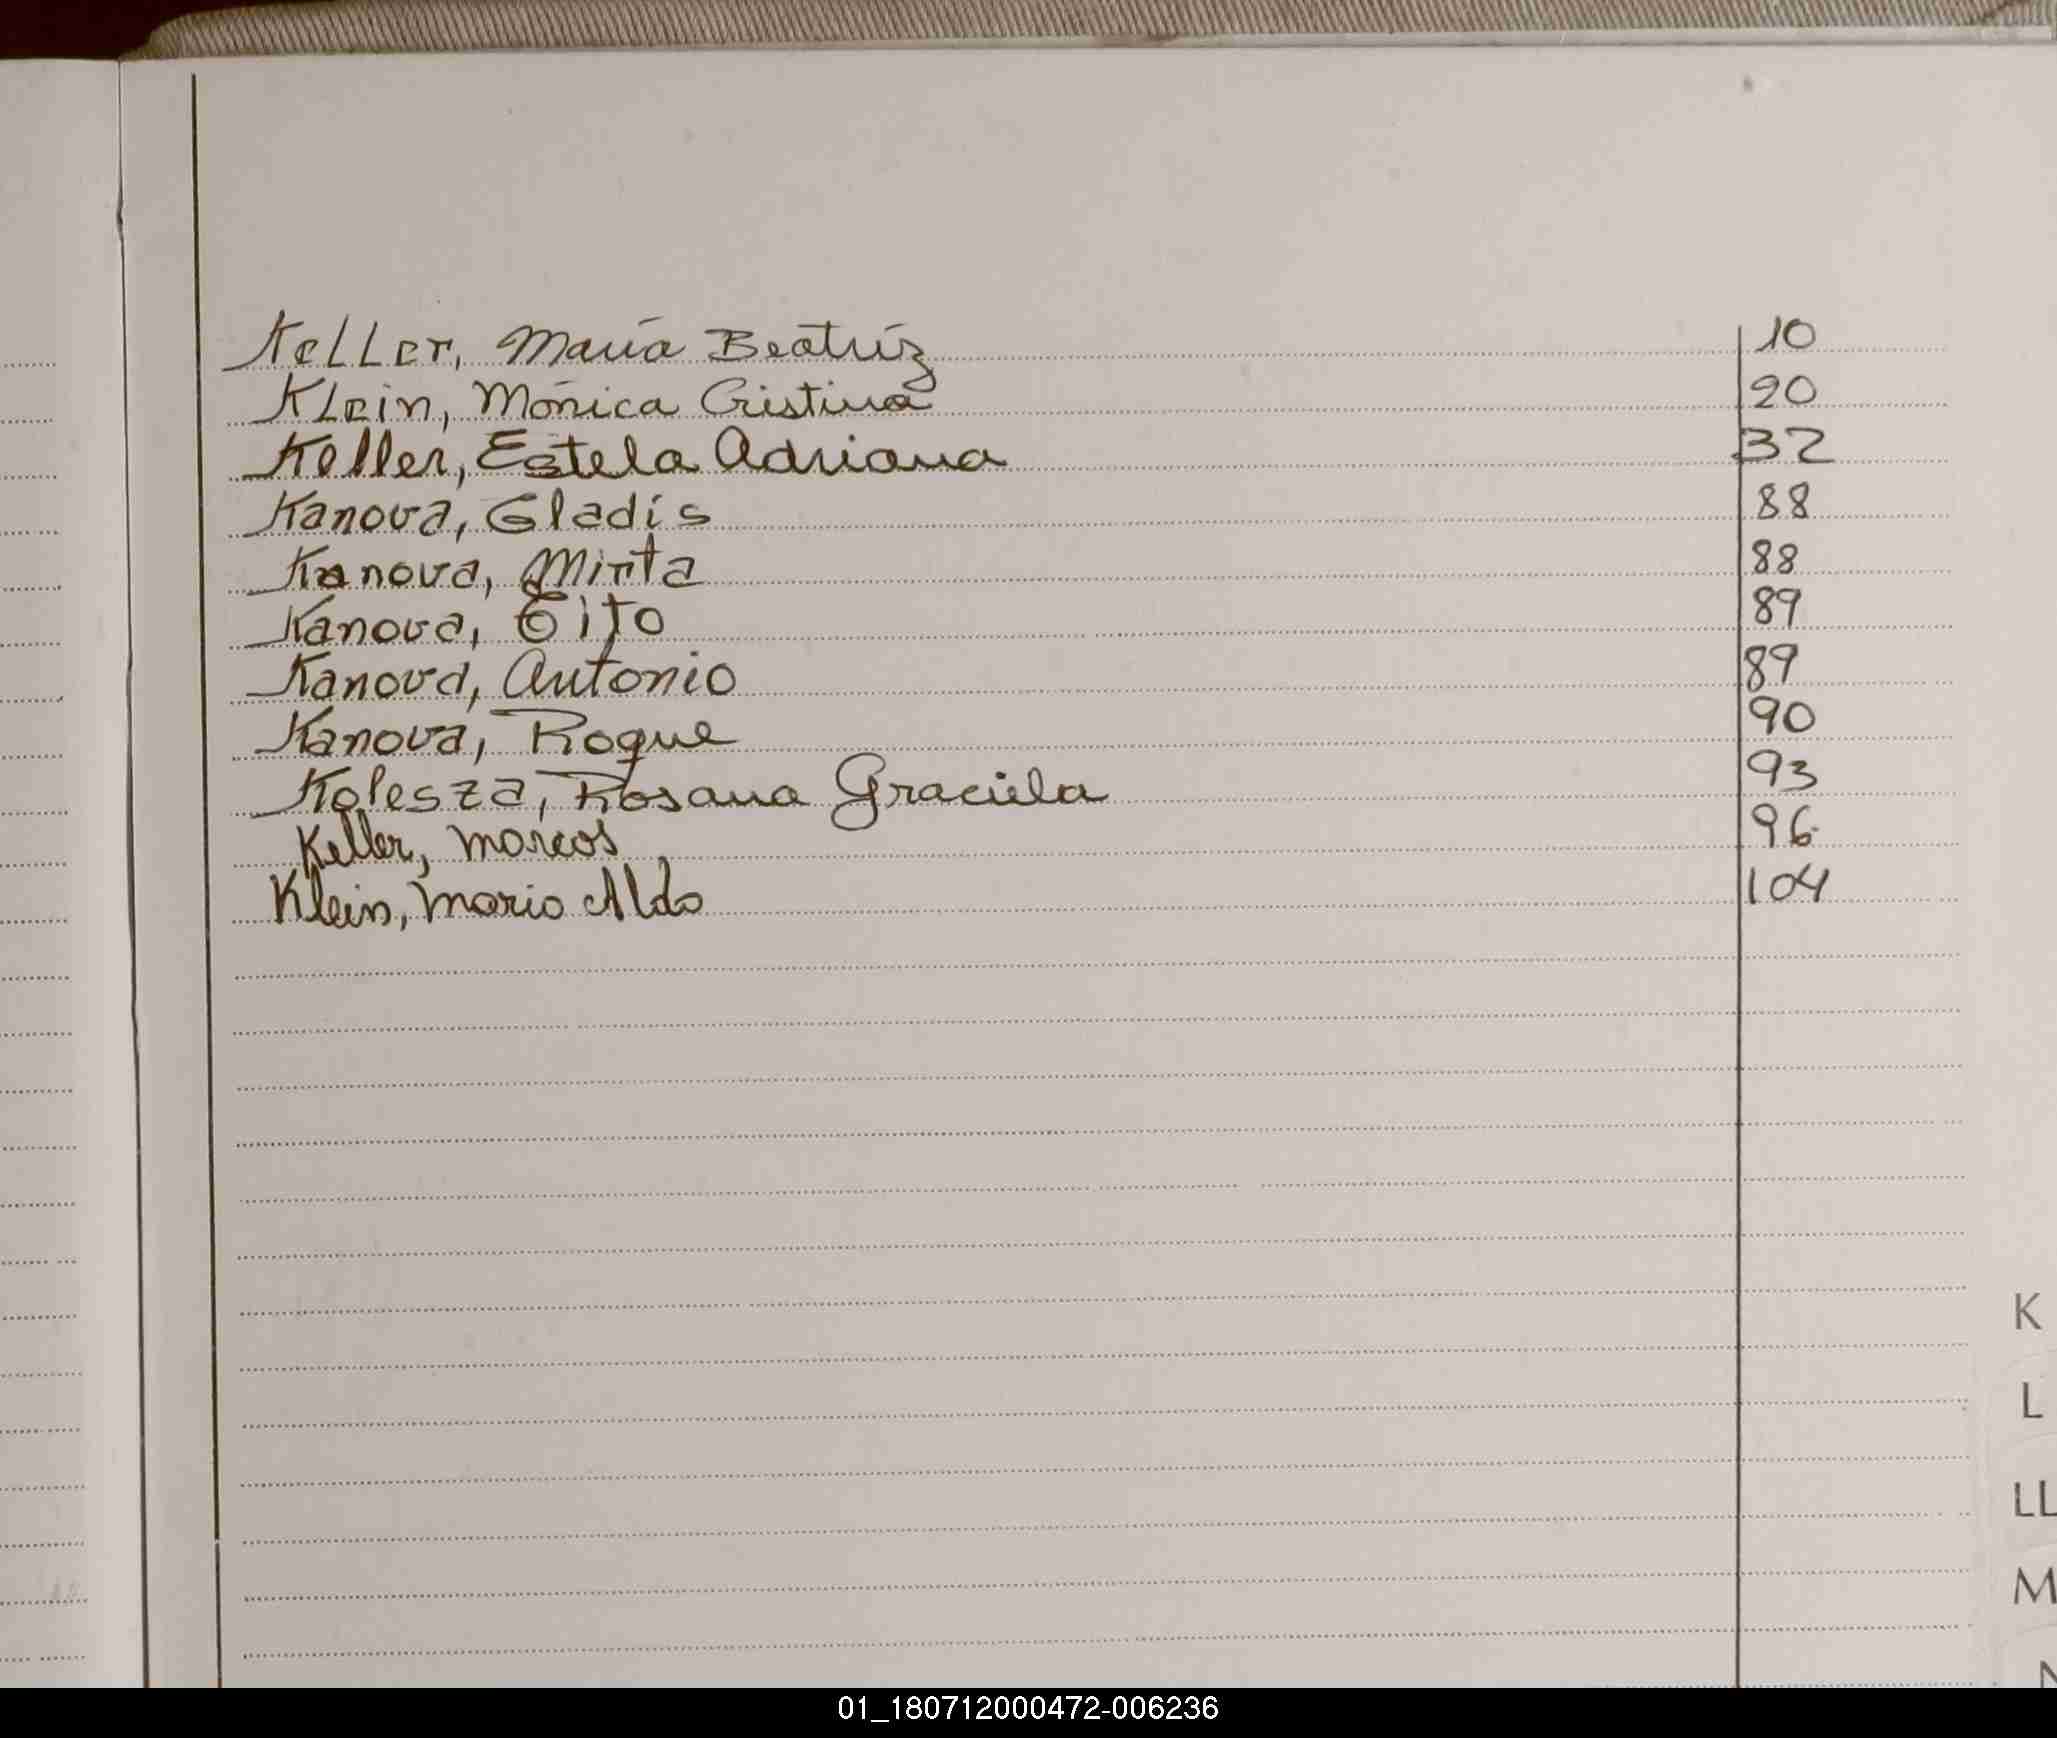 Keller, María Beatríz 10
Klein, Mónica Cristina 20
Keller, Estela Adriana 32
Kanova, Gladís 88
Kanova, Mirta 88
Kanova, 89
Kanova, Antonio 89
Kanova, Roque 90
Kolesza, Rosana Graciela 93
Keller, Marcos 96
Klein, Mario Aldo 104
K
L
LL
M
N
01_180712000472-006236